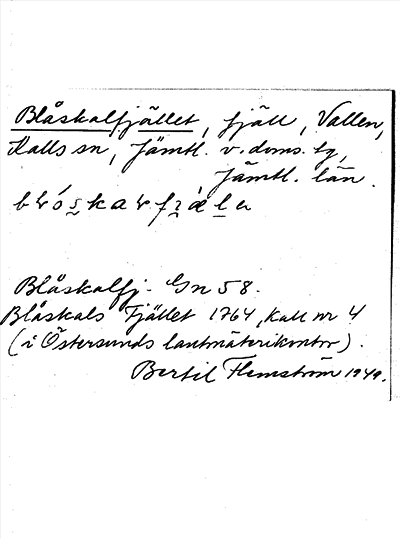 Blåskalfjället, fjäll, Vallen,
Kalls sn, Jämtl. v. doms. tg,
Jämtl. län.
Blåskalfj. Gn 58.
Blåskals Fjället 1764, Kall nr 4
(i Östersunds lantmäterikontor).
Bertil Flemström 1949.